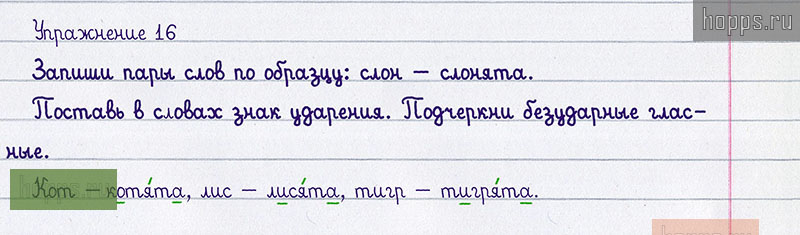 hopps.ru
Упражнение 16
Запиши пары слов по образцу: слон – слонята.
Поставь в словах знак ударения. Подчеркни безударные глас-
ные.
Кот – котя́та, лис – лися́та, тигр – тигря́та.